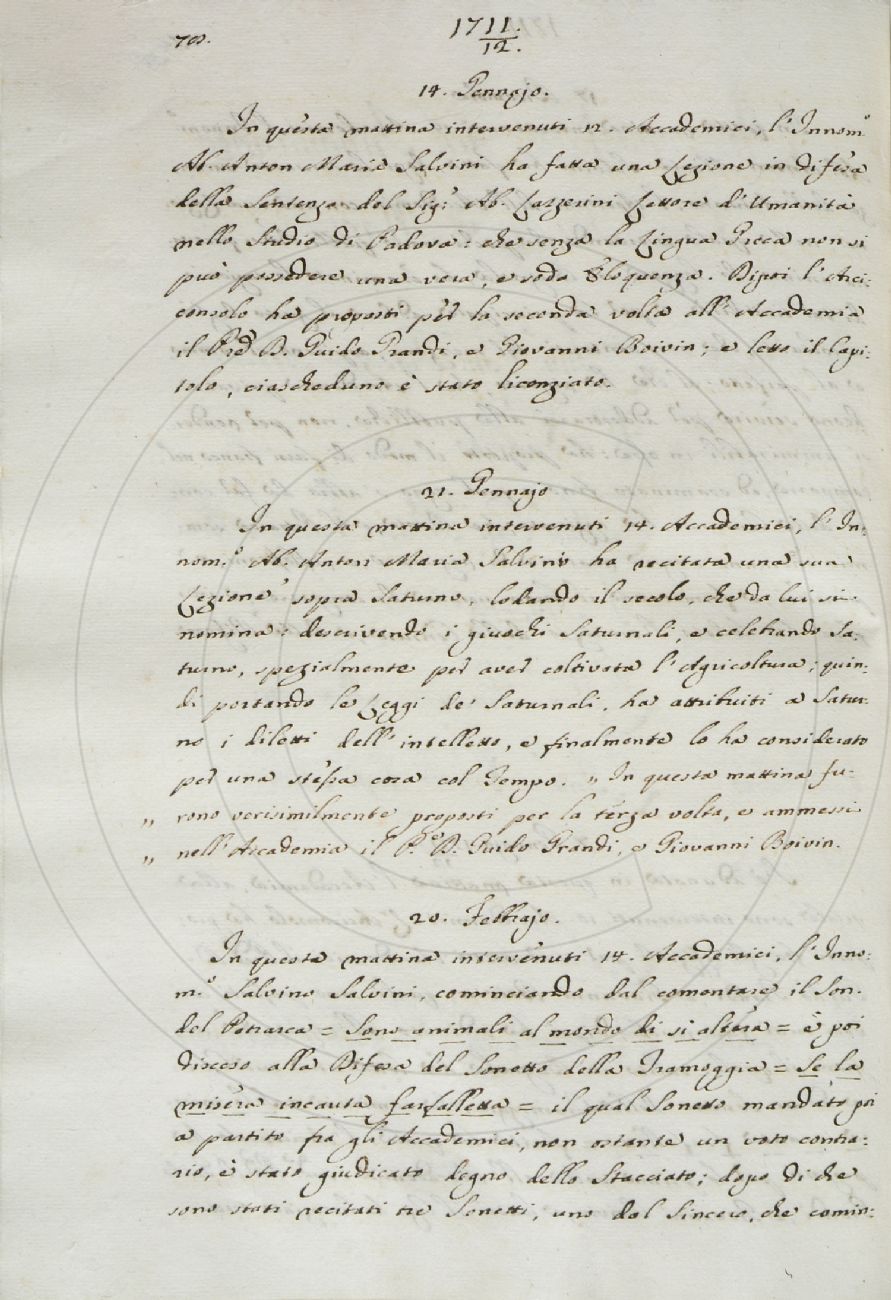 702.
1711.
12.
14. Gennajo.
In questa mattina intervenuti 12. Accademici, l'Innom.º
Ab. Anton Maria Salvini ha fatta una Lezione in difesa
della Sentenza del Sig.r Ab. Lazzerini Lettore d'Umanità
nello Studio di Padova: che senza la Lingua Greca non si
può possedere una vera, e soda Eloquenza. Dipoi l'Arci:
consolo ha proposti per la seconda volta all'Accademia
il Pr̃e D. Guido Grandi, e Giovanni Boivin; e letto il Capi:
tolo, ciascheduno è stato licenziato.
21. Gennajo
In questa mattina intervenuti 14. Accademici, l'In:
nom.º Ab. Anton Maria Salvini ha recitata una sua
Lezione sopra Saturno, lodando il secolo, che da lui si
nomina: descrivendo i giuochi Saturnali, e celebrando Sa:
turno, spezialmente per aver coltivata l'Agricoltura; quin:
di portando le Leggi de' Saturnali, ha attribuiti a Satur:
no i diletti dell'intelletto, e finalmente lo ha considerato
per una stessa cosa col Tempo. „ In questa mattina fu:
„ rono verisimilmente proposti per la terza volta, e ammessi
„ nell'Accademia il P.e D. Guido Grandi, e Giovanni Boivin.
20. Febbrajo.
In questa mattina intervenuti 14. Accademici, l'Inno:
m.º Salvino Salvini, cominciando dal comentare il Son.
del Petrarca = Sono animali al mondo di sì altera = è poi
disceso alla Difesa del Sonetto della Tramoggia = Se la
misera incauta farfalletta = il qual Sonetto mandato poi
a partito fra gli Accademici, non ostante un voto contra:
rio, è stato giudicato degno dello Stacciato; dopo di che
sono stati recitati tre Sonetti, uno dal Sincero, che comin: